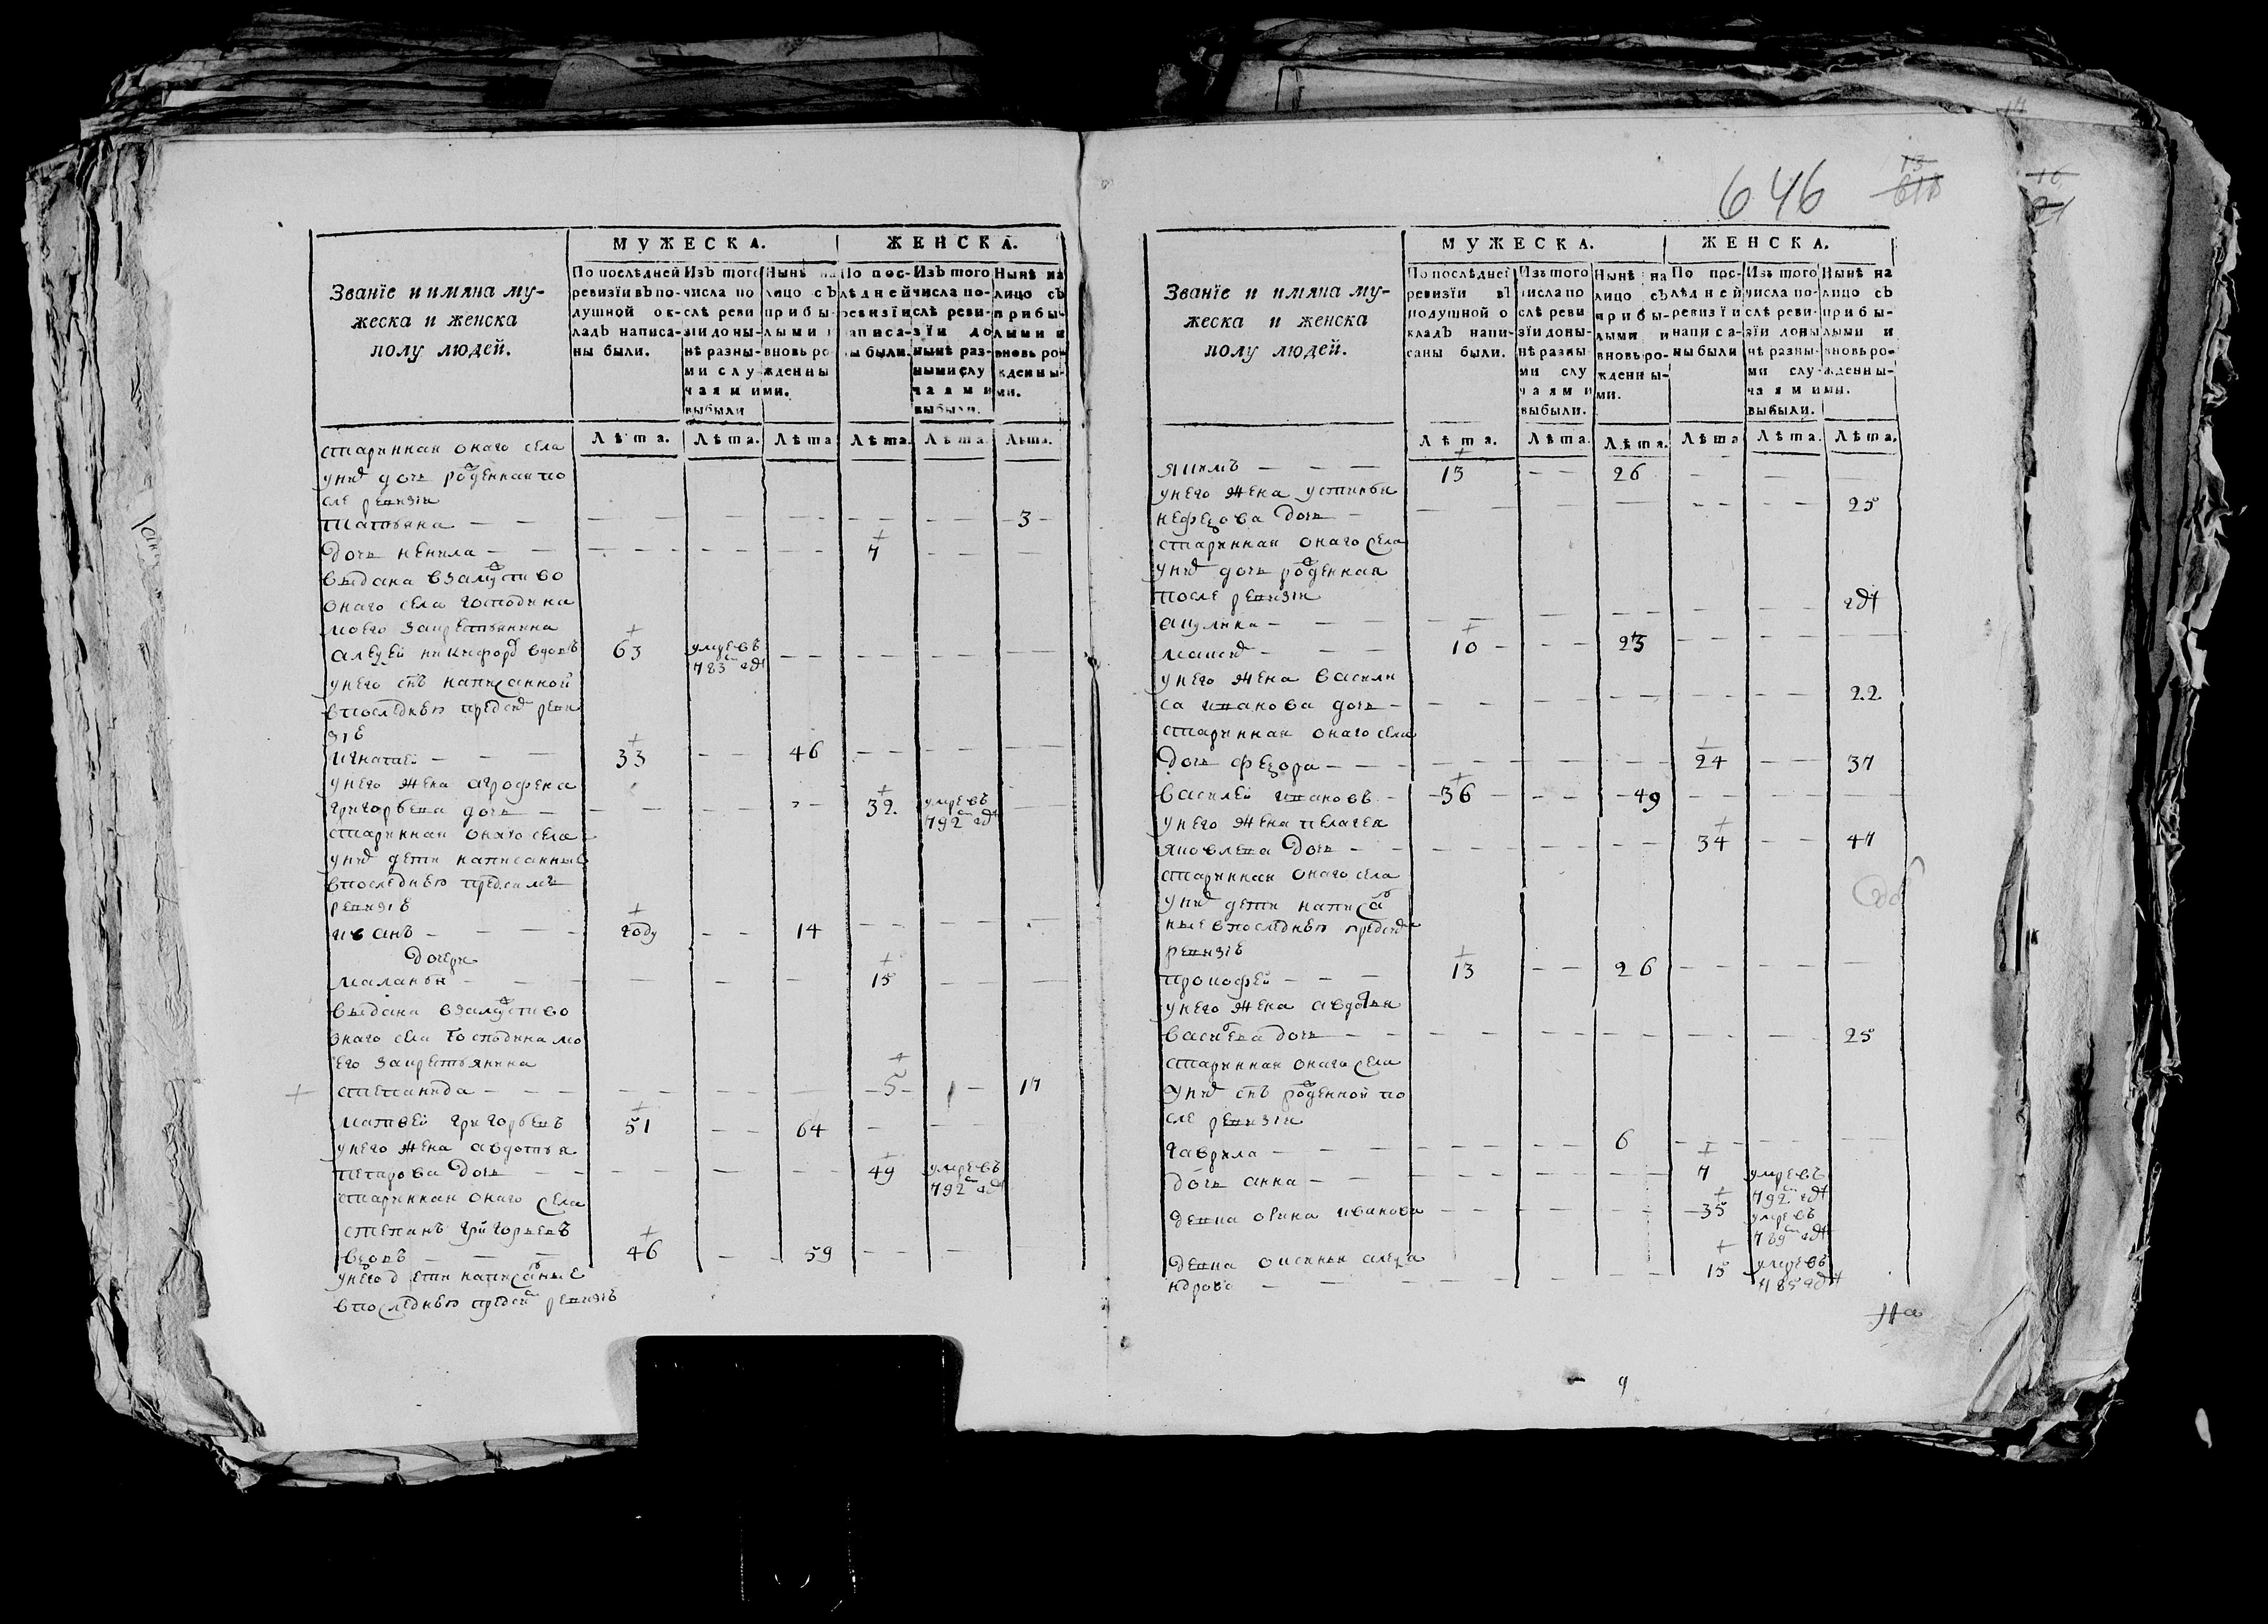 646
МУЖЕСКА. ЖЕНСКА.
Званїе и имяна му-
жеска и женска
полу людей.
По послѣдней ревизїи въ по-душной ок-ладъ написа-ны были.
Изъ того числа по слѣ реви зїи доны-нѣ разны-ми слу-чаями выбыли
Нынѣ на лицо съ прибы-лыми и вновь ро-жденны ми.
По пос-лѣдней ревизїи написа-ны были.
Изъ того числа по-слѣ реви-зїи до нынѣ раз-ными слу чаями выбыли.
Нынѣ на лицо съ прибы-лыми и вновь ро-жденны-ми.
Лѣта. Лѣта. Лѣта Лѣта. Лѣта. Лѣта.
стариннаи онаго села
у них дочь рожденная по
сле ревизiи
татьяна — — 3
дочь ненила — — 7
выдана взамуство
онаго села господина
моего закрестьянина
63 умре въ 783м году
у него снъ написанной
в последнею пред сию реви
зiе
игнатей — — 33 46
у него жена агрофена
григорьева дочь — 32. умре въ 792м году
стариннаи онаго села
у них дети написанные
в последнею пред сим
ревизiе
иванъ — — — году 14
дочери
маланья — — 15
выдана взамуство
онаго села господина мо
его закрестьянина
степанида — — — 5 17
матвей григорьевъ 51 64
у него жена авдотья
петрова дочь — — 49 умре въ 792м году
стариннаи онаго села
степанъ григорьевъ
вдовъ — — — 46 59
у него дети написаные
в последнею пред сию ревизiе
МУЖЕСКА. ЖЕНСКА.
Званїе и имяна му-
жеска и женска
полу людей.
По послѣдней ревизїи въ подушной о кладъ напи-саны были.
Изъ того числа по слѣ реви зїи доны-нѣ разны-ми слу чаями выбыли.
Нынѣ на лицо съ прибы-лыми и вновь ро-жденны-ми.
По пос-лѣдней ревизїи написа-ны были
Изъ того числа по-слѣ реви-зїи доны нѣ разны-ми слу-чаями выбыли.
Нынѣ на лицо съ прибы-лыми и вновь ро-жденны-ми.
Лѣта. Лѣта. Лѣта. Лѣта Лѣта. Лѣта.
якимъ — — — 13 26
у него жена устинья
нефедова дочь — 25
стариннаи онаго села
у них дочь рожденная
после ревизiи
акулина — — — году
10 23
у него жена васили
са иванова дочь — 22
стариннаи онаго села
дочь федора — — 24 37
василей ивановъ — 36 49
у него жена пелагея
яковлева дочь — — 34 47
стариннаи онаго села
у них дети написа
ные в последнею пред сию
ревизiе
прокофей — — — 13 26
у него жена авдотья
васильева дочь — — 25
стариннаи онаго села
у них снъ рожденной по
сле ревизiи
гаврила — — — 6
дочь анна — — 7 умре въ 792м году
девка орина иванова — 35 умре въ 789м году
девка оксинья алекса
ндрова — — 15 умре въ 785 году